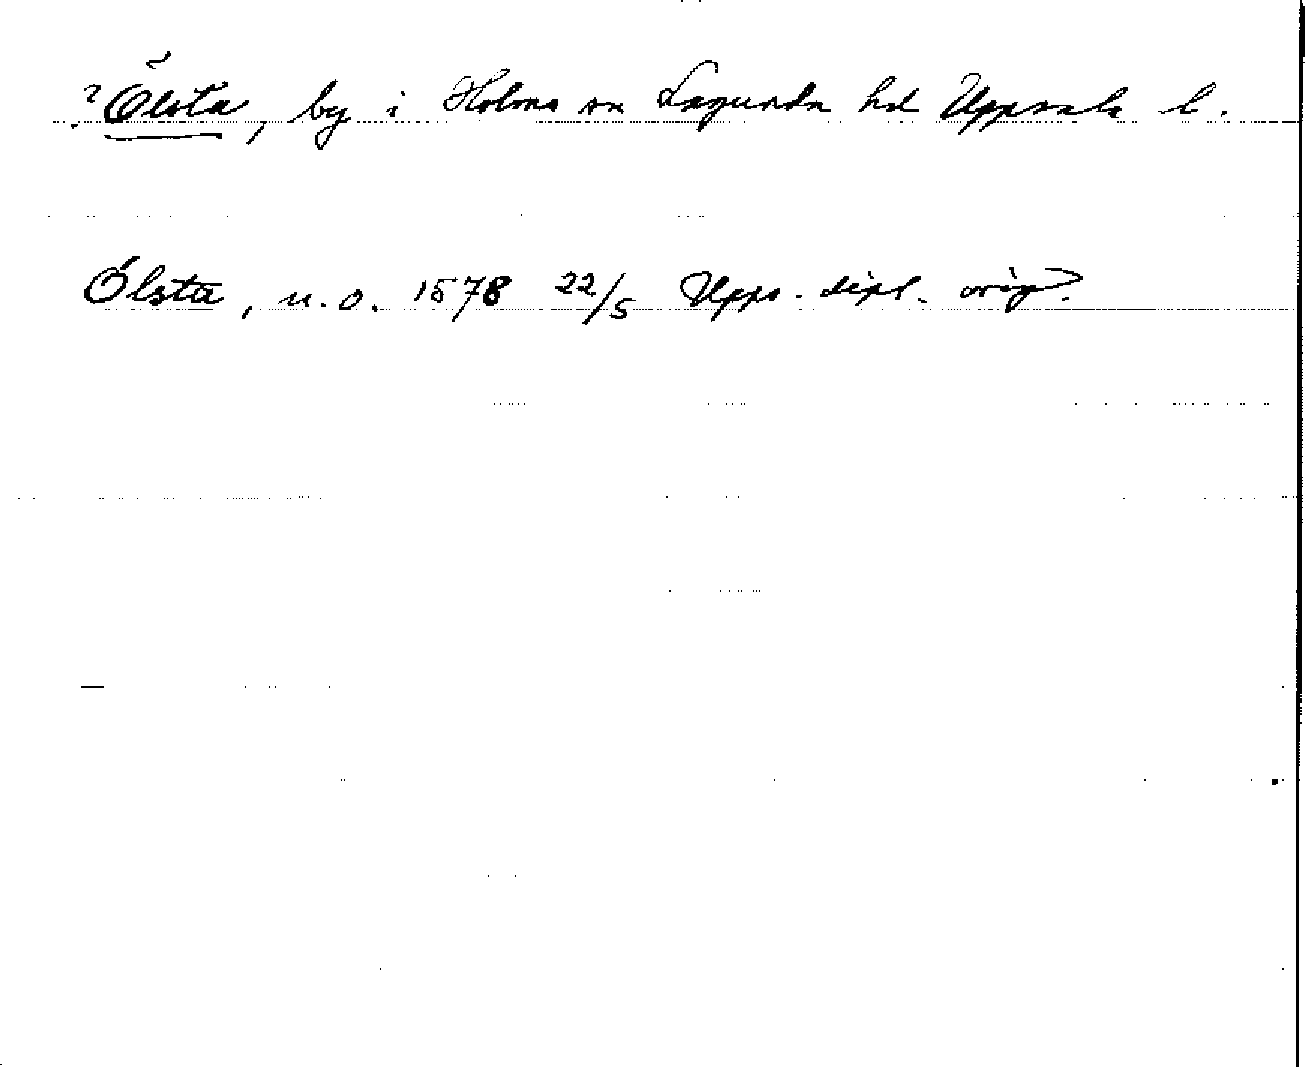 ? Ölsta, by i Holms sn Lagunda hd Uppsala l.
Ölsta, u.o. 1578 22/5 Upps. dipl. orig.